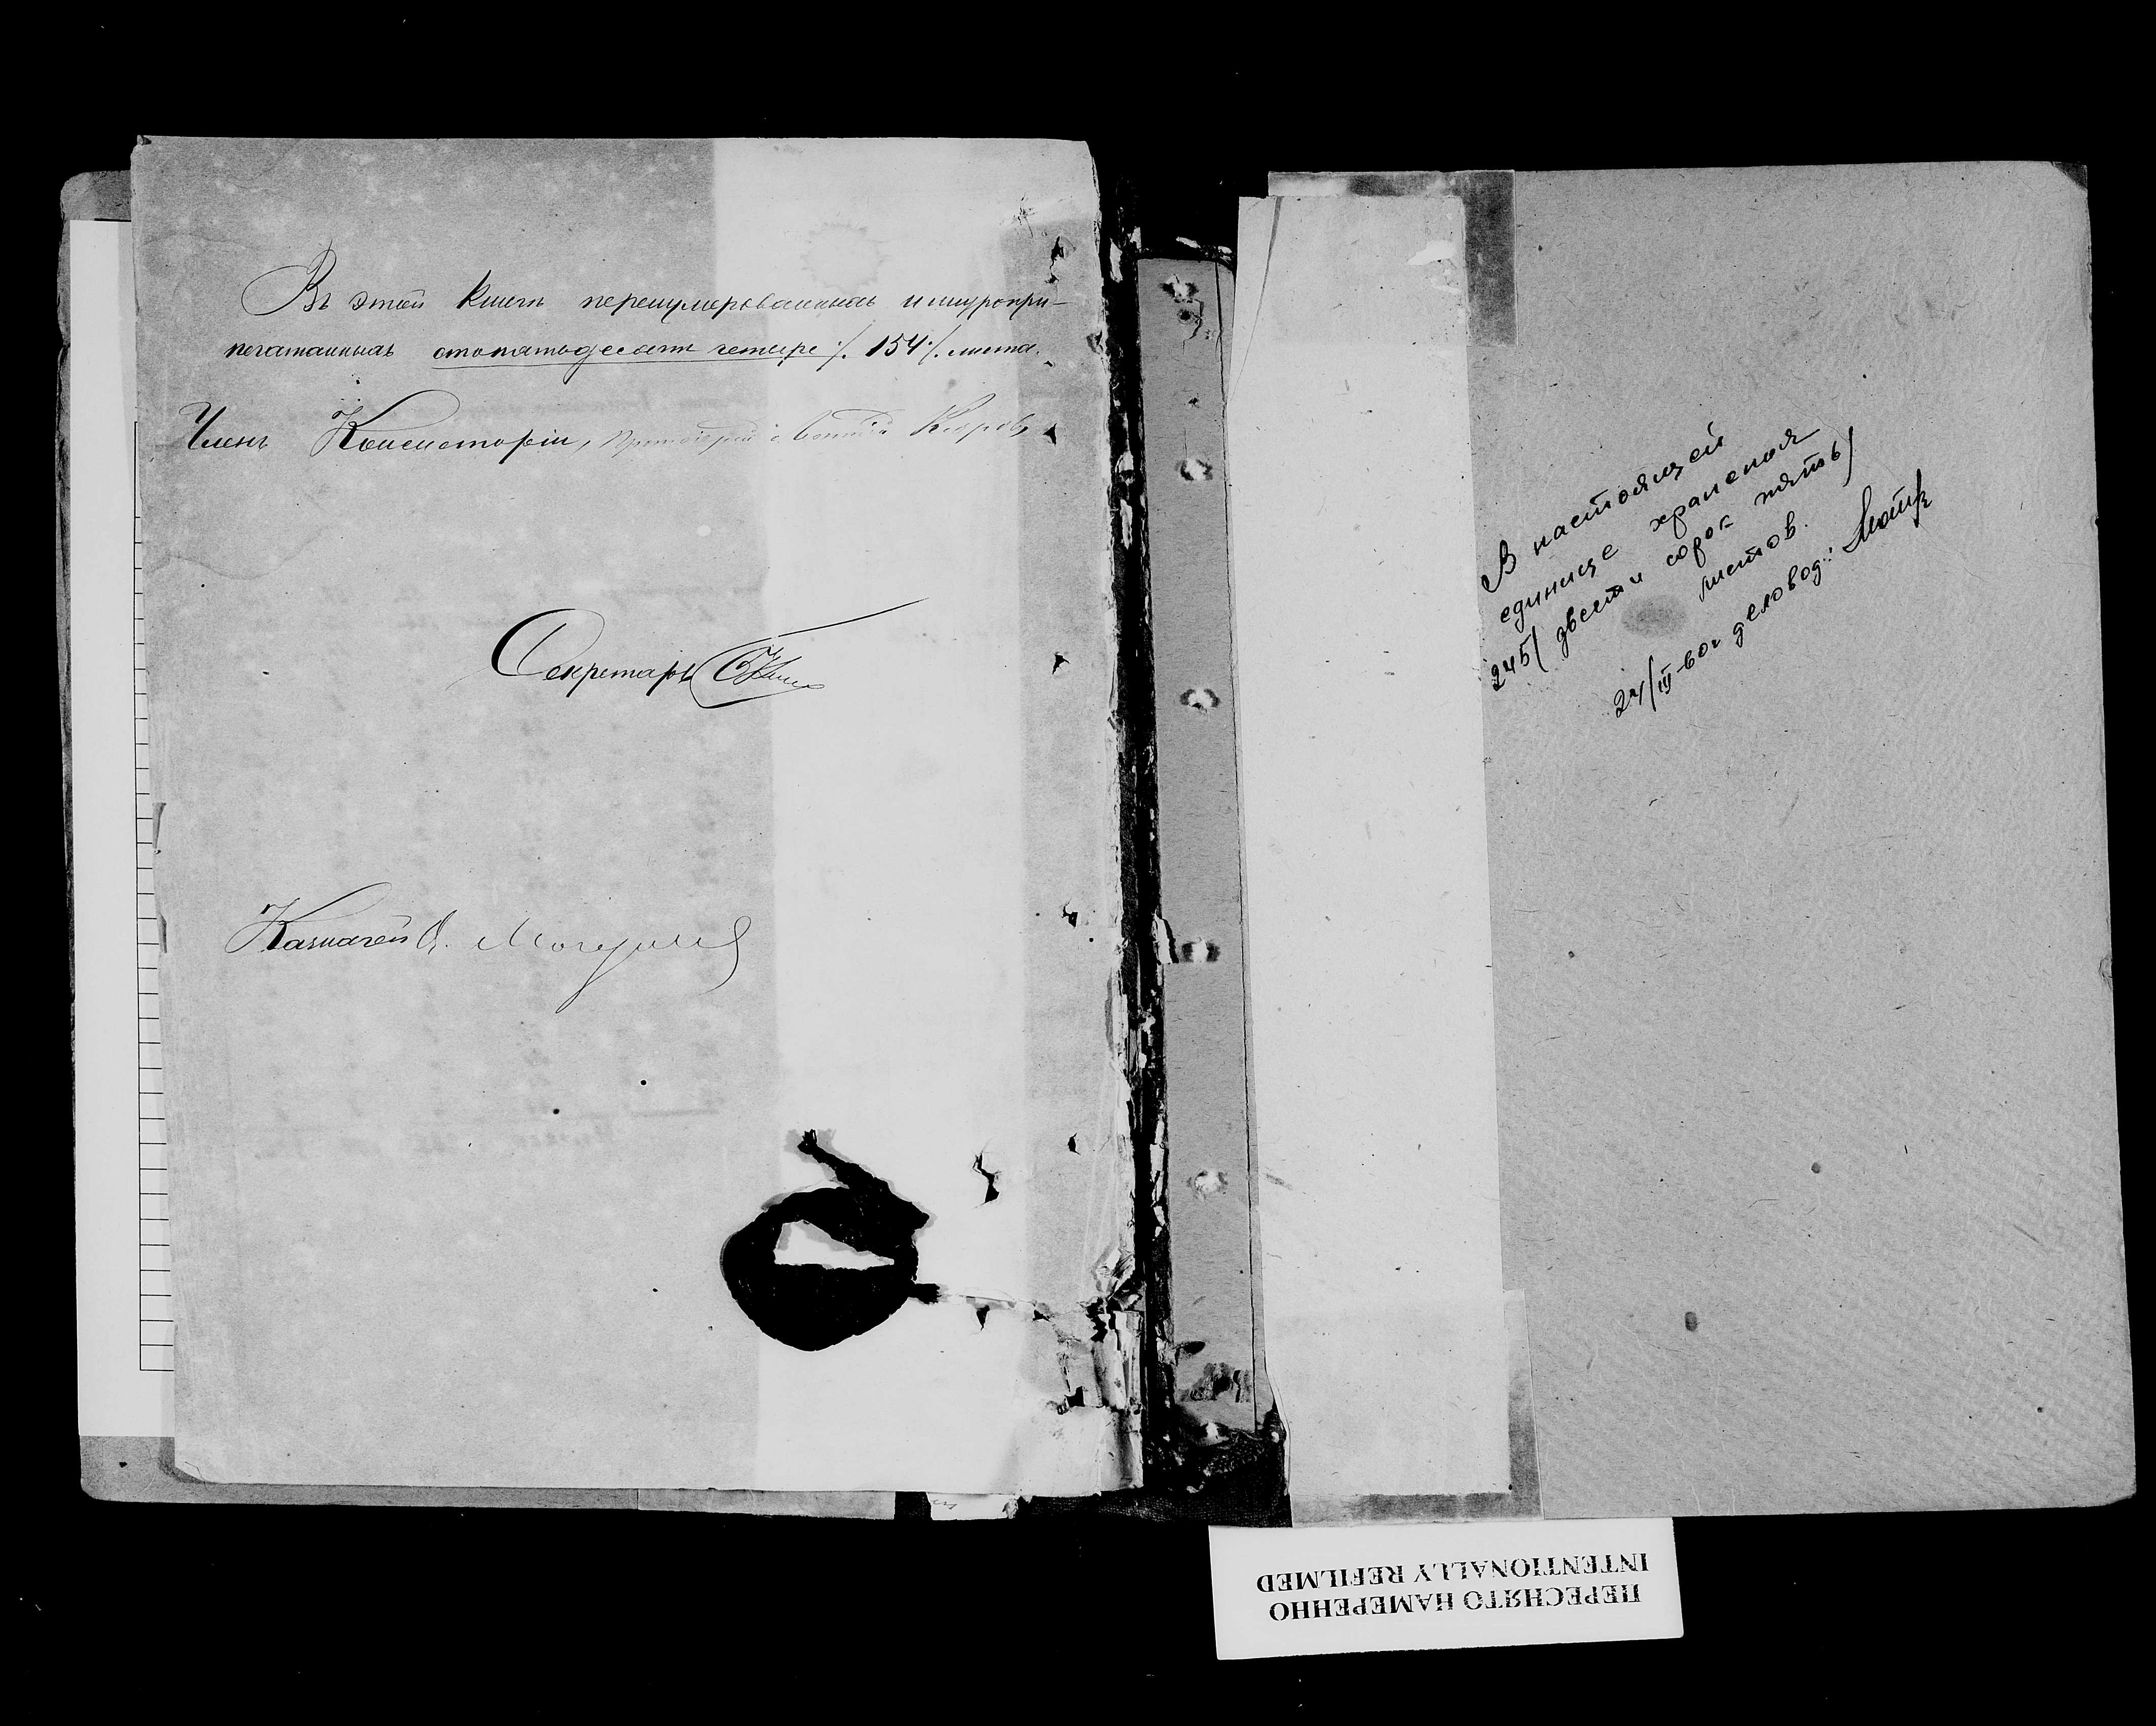 Въ этой книгѣ перенумерованныхъ и шнуропри-
печатанныхъ стопятьдесятъ четыре ·/. 154 ·/. листа.
Членъ Консисторіи, Протоіерей
Секретарь
Казначей
В настоящей
единице хранения
245/ двести сорок пять/
листов.
24/III-60г деловод:
ПЕРЕСНЯТО НАМЕРЕННО
INTENTIONALLY REFILMED